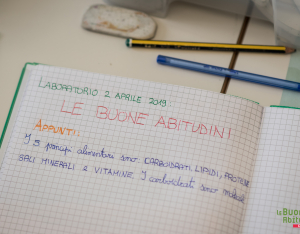 LABORATORIO 2 APRILE 2019:
LE BUONE ABITUDINI
APPUNTI:
I 5 principi alimentari sono CARBOIDRATI, LIPIDI, PROTEINE
SALI MINERALI E VITAMINE. I carboidrati sono
le Buone
Abit